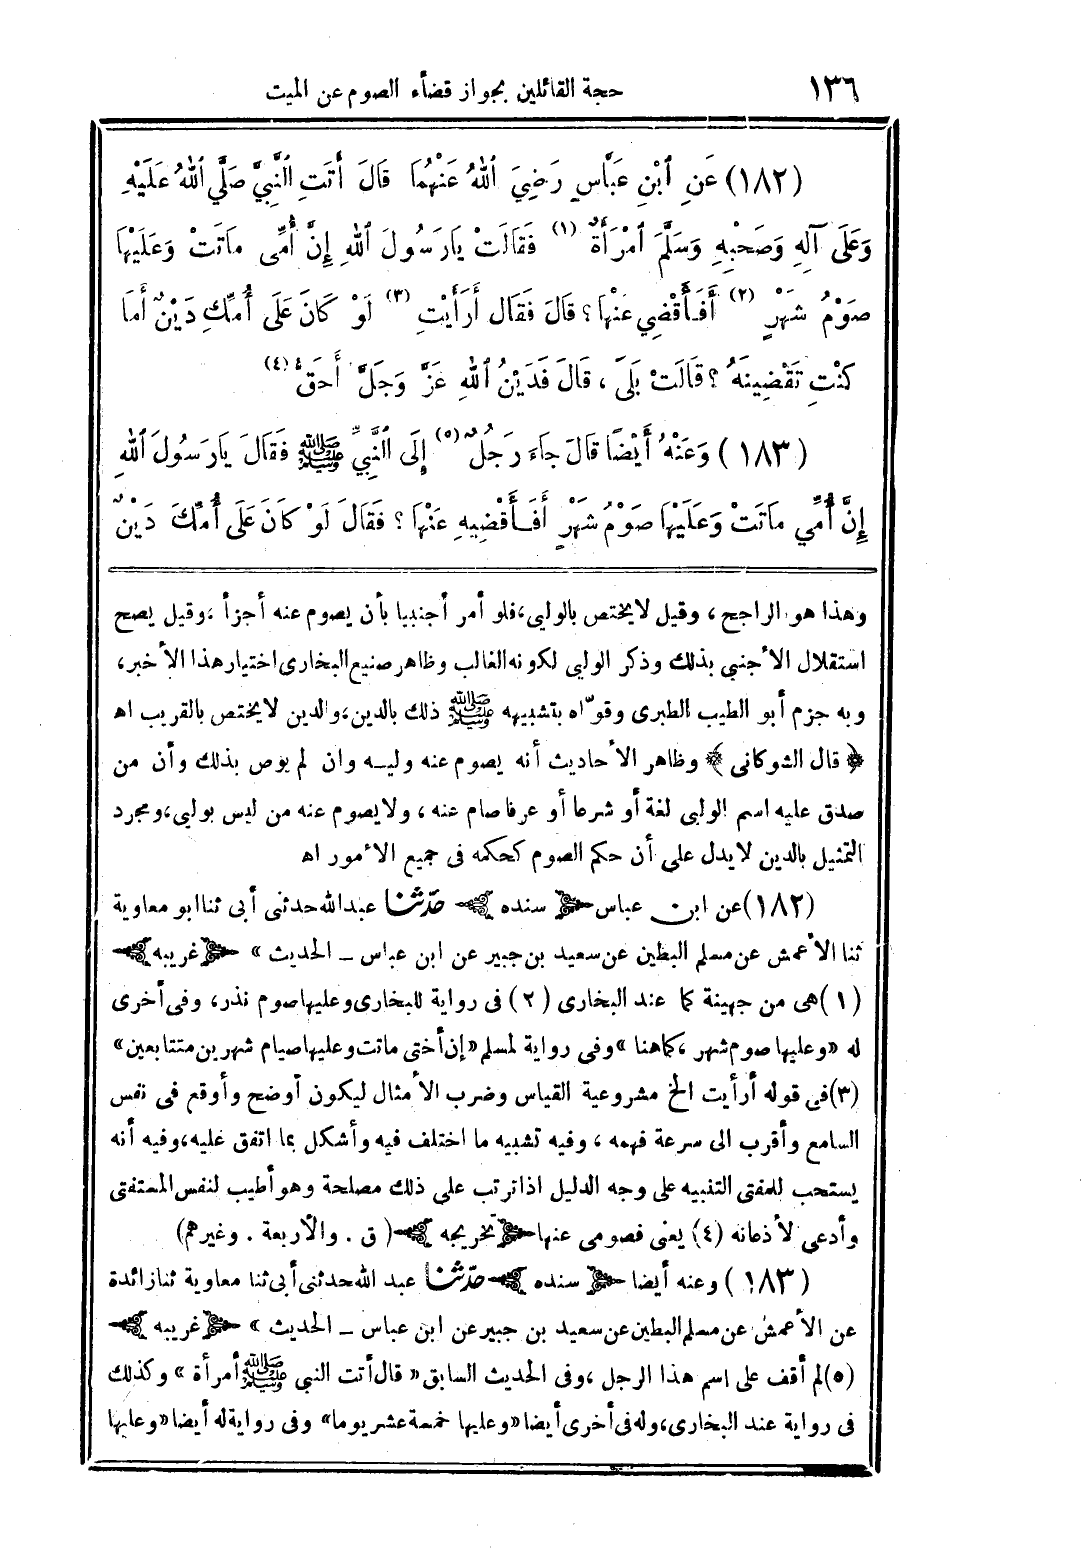 ١٣٦ حجة القائلين بجواز قضاء الصوم عن الميت
(١٨٢) عَنِ ٱبْنِ عَبَّاسٍ رَضِيَ ٱللهُ عَنْهُمَا قَالَ أَتَتِ ٱلنَّبِيَّ صَلَّي ٱللهُ عَلَيْهِ
وَعَلَى آلِهِ وَصَحْبِهِ وَسَلَّمَ ٱمْرَأَةٌ (١) فَقَالَتْ يَارَسُولَ ٱللهِ إِنَّ أُمِّى مَاتَتْ وَعَلَيْهَا
صَوْمُ شَهْرٍ (٢) أَفَأَقْضِي عَنْهَا؟ قَالَ فَقَال أَرَأَيْتِ (٣) لَوْ كَانَ عَلَى أُمِّكِ دَيْنٌ أَمَا
كُنْتِ تَقْضِينَهُ؟ قَالَتْ بَلَى، قَالَ فَدَيْنُ اللهِ عَزَّ وَجَلَّ أَحَقُّ (٤)
(١٨٣) وَعَنْهُ أَيْضًا قَالَ جَاءَ رَجُلٌ (٥) إِلَى ٱلنَّبِيِّ ﷺ فَقَالَ يَارَسُولَ ٱللهِ
إِنَّ أُمِّي مَاتَتْ وَعَلَيْهَا صَوْمُ شَهْرٍ أَفَأَقْضِيهِ عَنْهَا؟ فَقَالَ لَوْ كَانَ عَلَى أُمِّكَ دَيْنٌ
وهذا هو الراجح، وقيل لايختص بالولي، فلو أمر أجنبيا بأن يصوم عنه أجزأ، وقيل يصح
استقلال الأجنبي بذلك وذكر الولي لكونه الغالب وظاهر صنيع البخارى اختيار هذا الأخير،
وبه جزم أبو الطيب الطبرى وقوّاه بتشبيهه ﷺ ذلك بالدين، والدين لايختص بالقريب اه
﴿قال الشوكانى﴾ وظاهر الأحاديث أنه يصوم عنه وليه وان لم يوص بذلك وأن من
صدق عليه اسم الولي لغة أو شرعا أو عرفا صام عنه، ولا يصوم عنه من ليس بولي، ومجرد
التمثيل بالدين لايدل على أن حكم الصوم كحكمه فى جميع الأمور اه
(١٨٢) عن ابن عباس ﴿سنده﴾ حدّثنا عبد الله حدثنى أبى ثنا ابو معاوية
ثنا الأعمش عن مسلم البطين عن سعيد بن جبير عن ابن عباس ـ الحديث » ﴿غريبه﴾
(١) هى من جهينة كما عند البخارى (٢) فى رواية للبخارى وعليها صوم نذر، وفى أخرى
له «وعليها صوم شهر، كما هنا» وفى رواية لمسلم «إن أختى ماتت وعليها صيام شهرين متتابعين»
(٣) فى قوله أرأيت الخ مشروعية القياس وضرب الأمثال ليكون أوضح وأوقع فى نفس
السامع وأقرب الى سرعة فهمه، وفيه تشبيه ما اختلف فيه وأشكل بما اتفق عليه، وفيه أنه
يستحب للمفتى التنبيه على وجه الدليل اذا ترتب على ذلك مصلحة وهو أطيب لنفس المستفتى
وأدعى لأذعانه (٤) يعنى فصومى عنها ﴿تخريجه﴾ (ق . والأربعة . وغيرهم)
(١٨٣) وعنه أيضا ﴿سنده﴾ حدّثنا عبد الله حدثنى أبى ثنا معاوية ثنا زائدة
عن الأعمش عن مسلم البطين عن سعيد بن جبير عن ابن عباس ـ الحديث » ﴿غريبه﴾
(٥) لم أقف على اسم هذا الرجل، وفى الحديث السابق «قال أتت النبى ﷺ أمرأة» وكذلك
فى رواية عند البخارى، وله فى أخرى أيضا «وعليها خمسة عشر يوما» وفى رواية له أيضا «وعليها